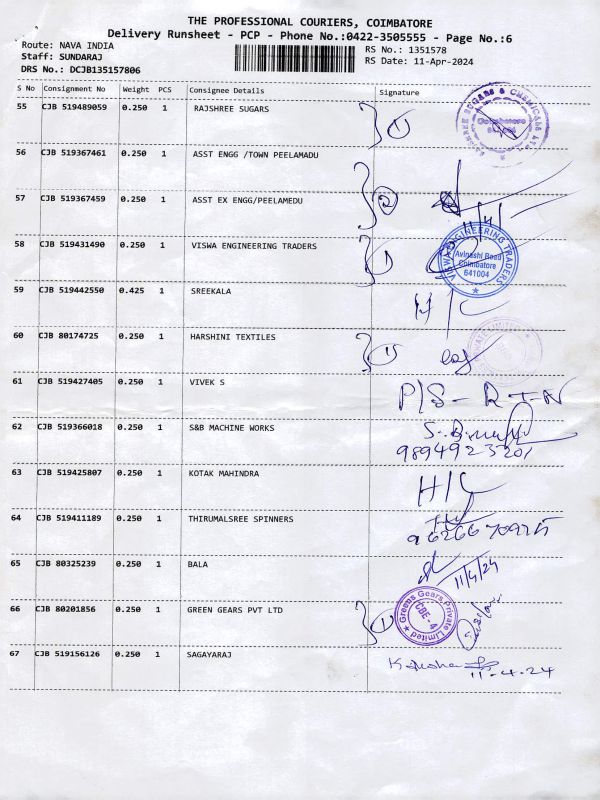 THE PROFESSIONAL COURIERS, COIMBATORE
Delivery Runsheet - PCP - Phone No.:0422-3505555 - Page No.:6
Route: NAVA INDIA RS No.: 1351578
Staff: SUNDARAJ RS Date: 11-Apr-2024
DRS No.: DCJB135157806
S No Consignment No Weight PCS Consignee Details Signature
55 CJB 519489059 0.250 1 RAJSHREE SUGARS 1
RAJSHREE SUGARS & CHEMICALS LTD
Coimbatore
56 CJB 519367461 0.250 1 ASST ENGG /TOWN PEELAMADU
57 CJB 519367459 0.250 1 ASST EX ENGG/PEELAMEDU 2
11/4/
58 CJB 519431490 0.250 1 VISWA ENGINEERING TRADERS 1
VISWA ENGINEERING TRADERS
Avinashi Road
Coimbatore
641004
59 CJB 519442550 0.425 1 SREEKALA H/C
60 CJB 80174725 0.250 1 HARSHINI TEXTILES 1
61 CJB 519427405 0.250 1 VIVEK S P/S - RTN
62 CJB 519366018 0.250 1 S&B MACHINE WORKS
9894923201
63 CJB 519425807 0.250 1 KOTAK MAHINDRA H/C
64 CJB 519411189 0.250 1 THIRUMALSREE SPINNERS
65 CJB 80325239 0.250 1 BALA 11/4/24
66 CJB 80201856 0.250 1 GREEN GEARS PVT LTD 1
Greens Gears Private Limited
CBE-4
67 CJB 519156126 0.250 1 SAGAYARAJ
11-4-24